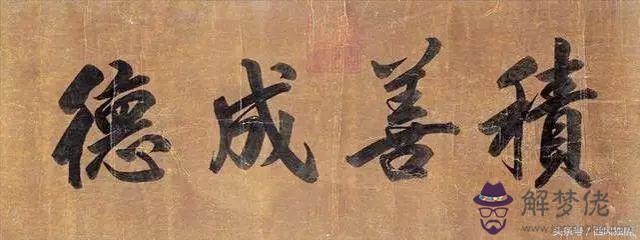 積善成德
解梦佬
头条号 /